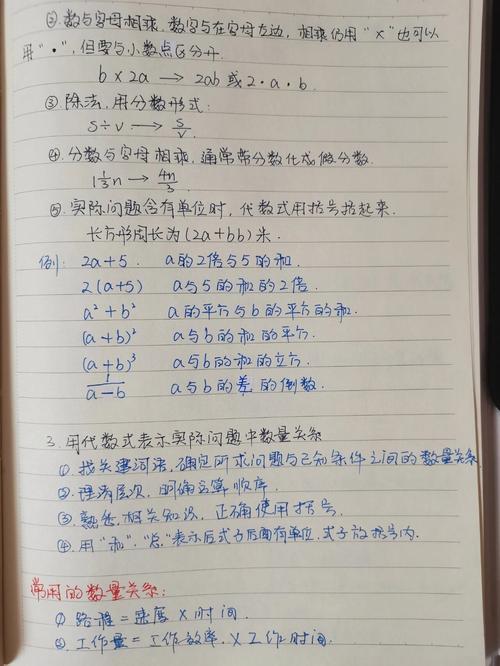 ②. 数与字母相乘,数字写在字母左边,相乘仍用“×”也可以
用“•”,但要与小数点区分开.
b × 2a → 2ab 或 2·a·b.
③ 除法,用分数形式:
s÷v → s/v.
④. 分数与字母相乘,通常带分数化成假分数.
1 1/3 n → 4n/3.
⑤. 实际问题含有单位时,代数式用括号括起来.
长方形周长为(2a+bb)米.
例: 2a+5. a的2倍与5的和.
2(a+5) a与5的和的2倍.
a²+b² a的平方与b的平方的和.
(a+b)² a与b的和的平方.
(a+b)³ a与b的和的立方.
1/(a-b) a与b的差的倒数.
3. 用代数式表示实际问题中数量关系
①. 找关键词语,确定所求问题与已知条件之间的数量关系
②. 理清层次,明确运算顺序.
③. 熟悉相关知识,正确使用括号.
④. 用“和”.“差”表示后式子后面有单位,式子放括号内.
常用的数量关系:
① 路程=速度×时间.
②. 工作量=工作效率.×工作时间.